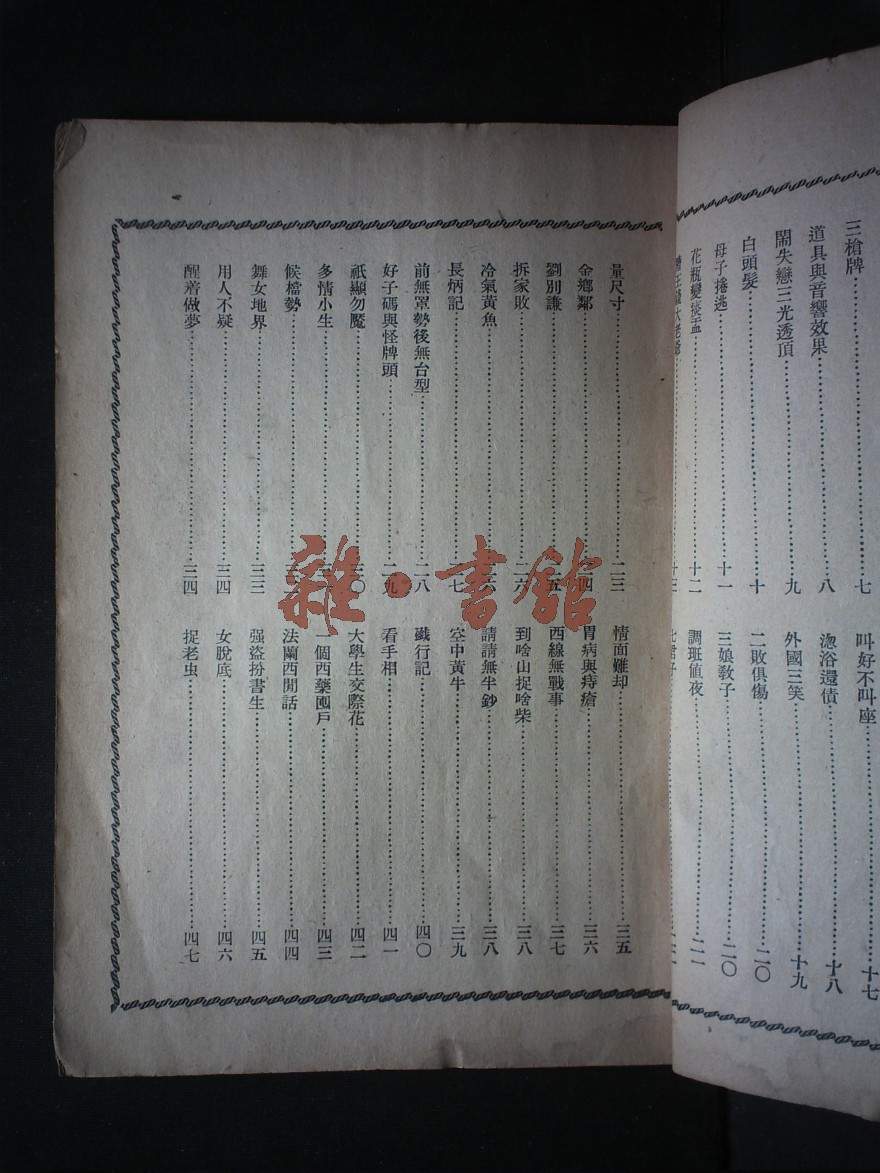 三槍牌⋯⋯七
道具與音響效果⋯⋯八
鬧失戀三光透頂⋯⋯九
白頭髮⋯⋯十
母子捲逃⋯⋯十一
花瓶變痰盂⋯⋯十二
大老爺⋯⋯十三
叫好不叫座⋯⋯十七
淴浴還債⋯⋯十八
外國三笑⋯⋯十九
二敗俱傷⋯⋯二〇
三娘教子⋯⋯二〇
調班値夜⋯⋯二一
七君子
量尺寸⋯⋯二三
金鄉鄰⋯⋯四
劉別謙⋯⋯五
拆家敗⋯⋯二六
冷氣黃魚⋯⋯六
長炳記⋯⋯七
前無罩勢後無台型⋯⋯二八
好子碼與怪牌頭⋯⋯二九
祇顯勿魘⋯⋯〇
多情小生⋯⋯
候檔勢⋯⋯
舞女地界⋯⋯三三
用人不疑⋯⋯三四
醒着做夢⋯⋯三四
情面難却⋯⋯三五
胃病與痔瘡⋯⋯三六
西線無戰事⋯⋯三七
到啥山捉啥柴⋯⋯三八
請請無半鈔⋯⋯三八
空中黃牛⋯⋯三九
戤行記⋯⋯四〇
看手相⋯⋯四一
大學生交際花⋯⋯四二
一個西藥囤戶⋯⋯四三
法蘭西閒話⋯⋯四四
强盜扮書生⋯⋯四五
女脫底⋯⋯四六
捉老虫⋯⋯四七
雜·書館